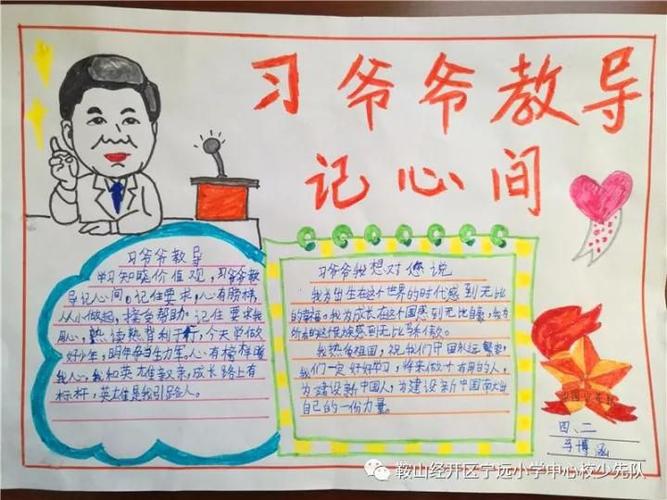 习爷爷教导
记心间
习爷爷教导
学习知晓价值观，习爷爷教
导记心间。记住要求，心有榜样，
从小做起，接受帮助。记住要求我
用心，熟读熟背利于行，今天学做
好少年，明年争当生力军。心有榜样暖
我人心，我和英雄
成长路上有
标杆，英雄是我引路人。
习爷爷我想对您说
我为出生在这个世界的时代感到无比
的幸福。我为成长在这个国家感到无比自豪，我为
所有的这个
感到无比骄傲。
我热爱祖国，祝我们中国永远繁荣，
我们一定好好学习，将来做个有用的人，
为建设新中国人，为建设新中国献出
自己的一份力量。
四、二
马博涵
鞍山经开区宁远小学中心校少先队